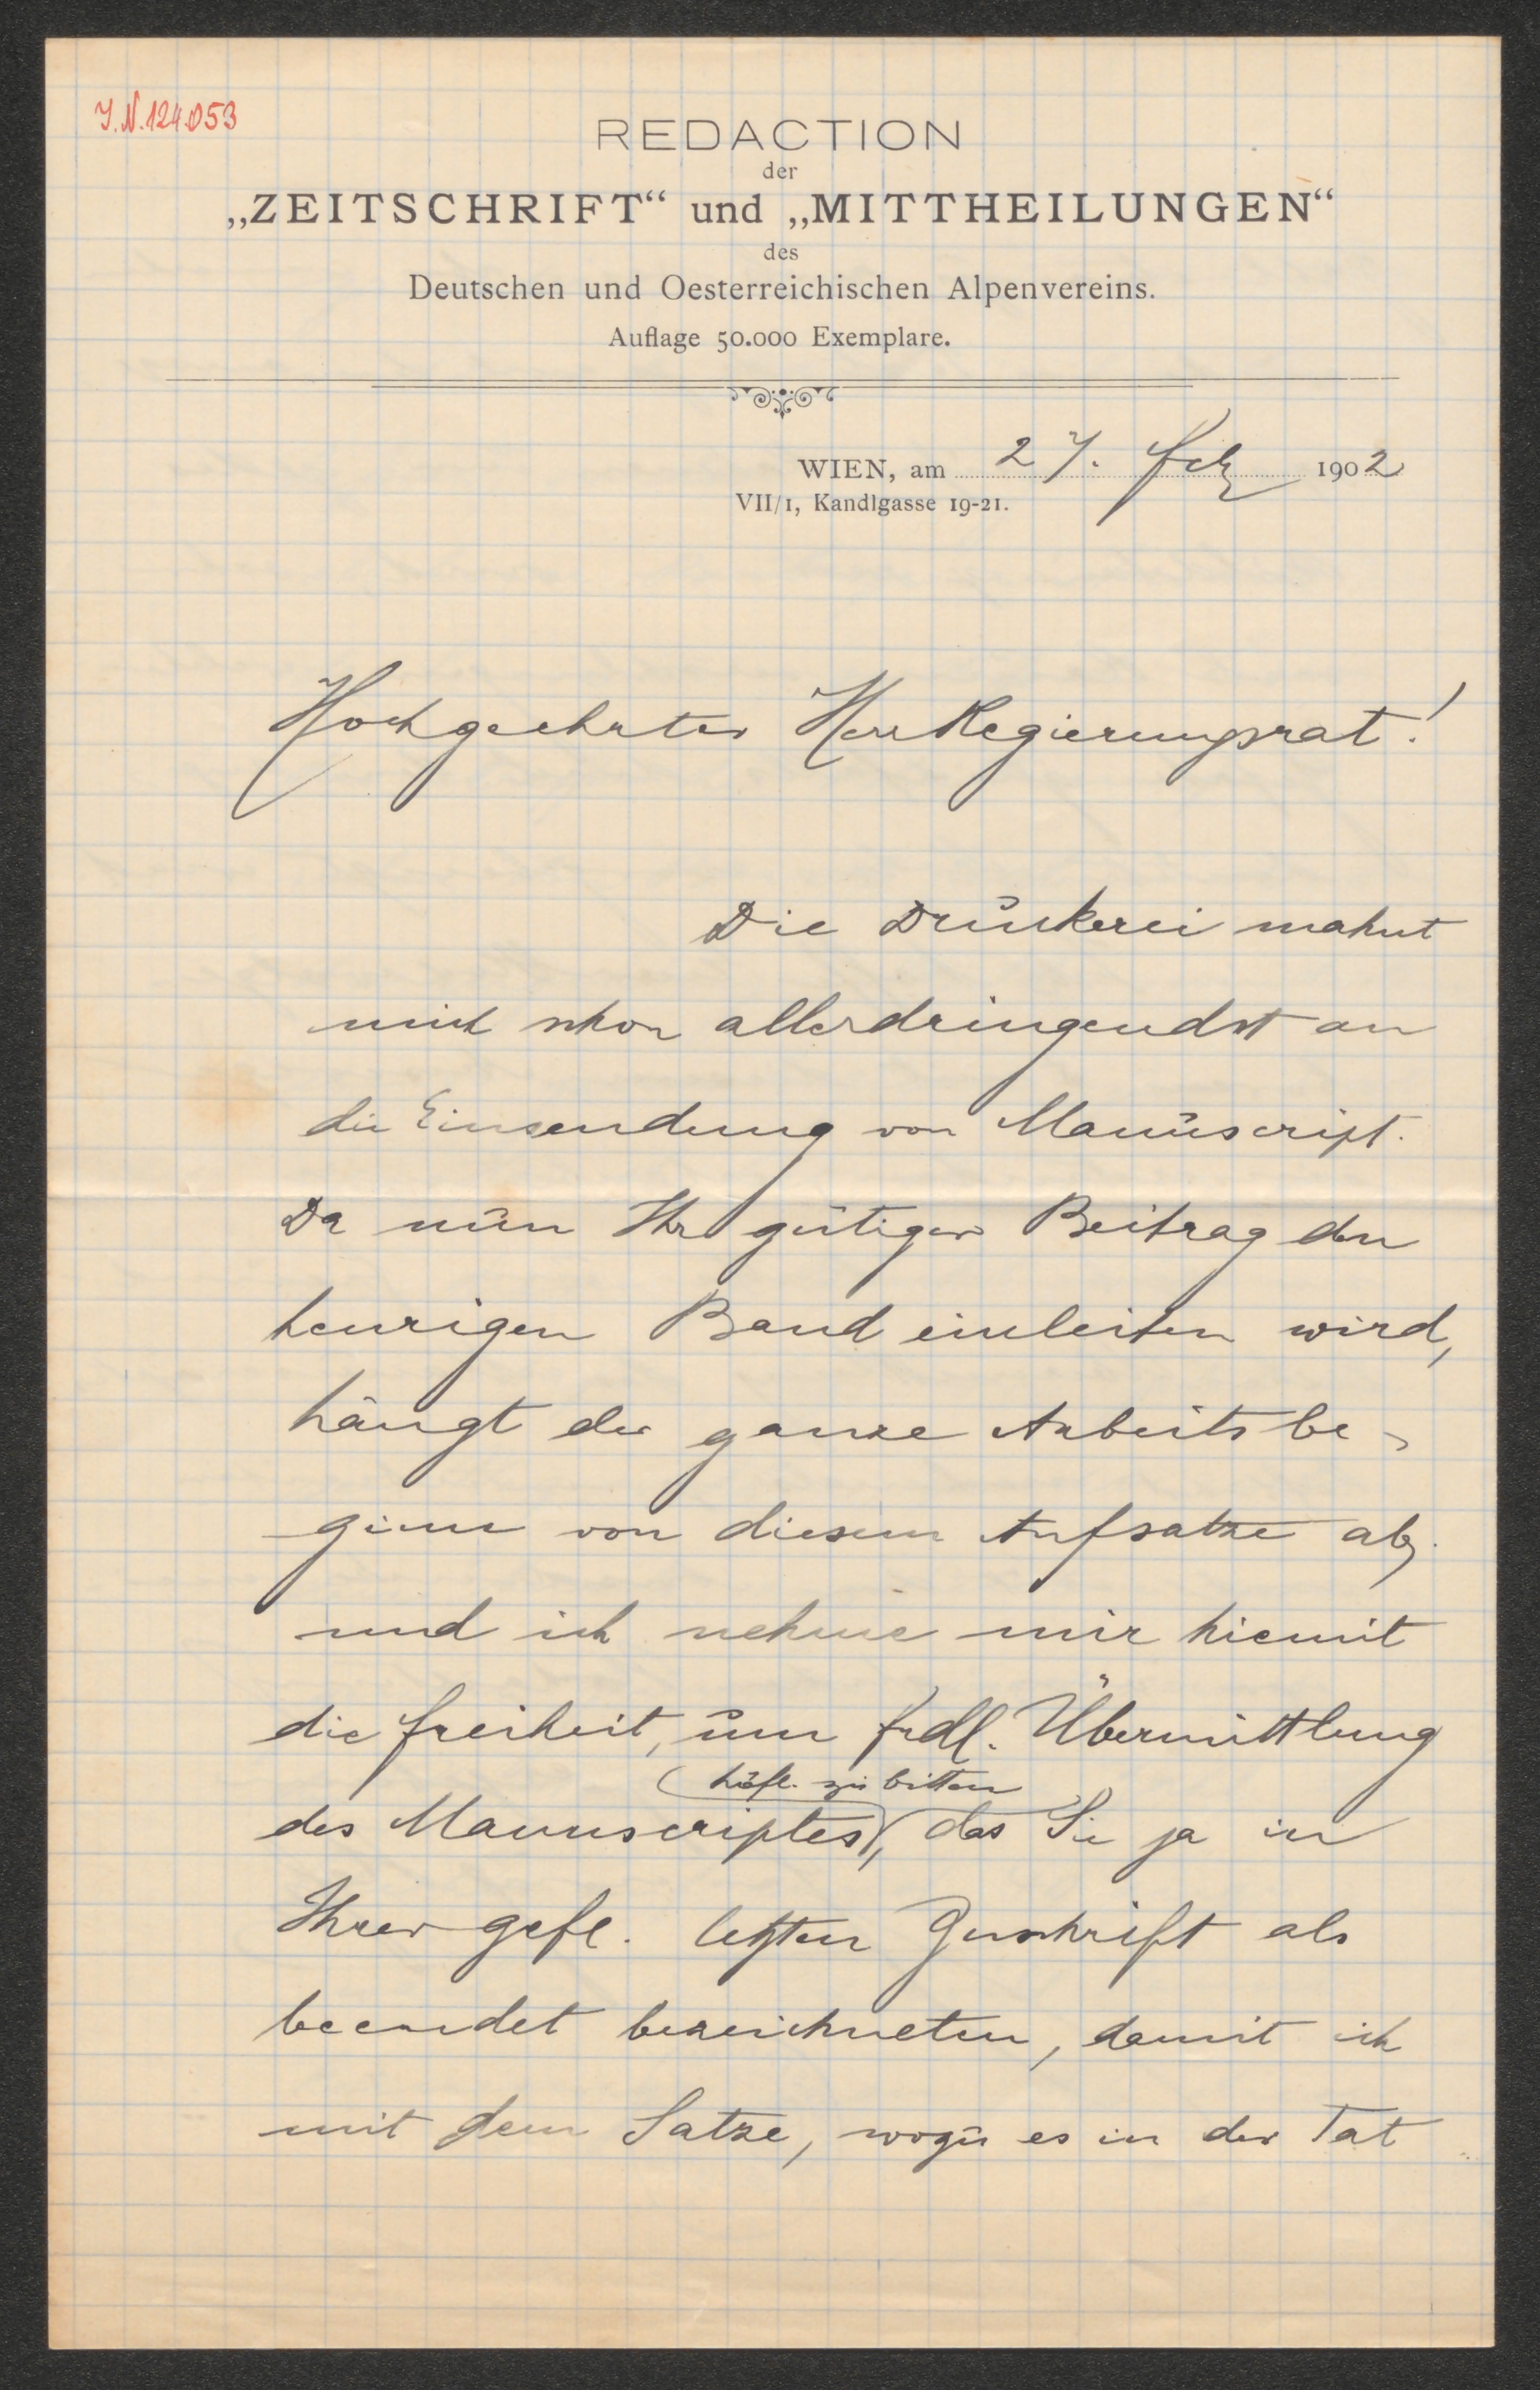 J.N. 124.053
REDACTION
der
„ZEITSCHRIFT“ und „MITTHEILUNGEN“
des
Deutschen und Oesterreichischen Alpenvereins.
Auflage 50.000 Exemplare.
WIEN, am 27. Feb 1902
VII/1, Kandlgasse 19-21.
Hochgeehrter Herr Regierungsrat!
Die Druckerei mahnt
mich schon allerdringendst an
die Einsendung von Manuscript.
Da nun Ihr gütiger Beitrag den
heurigen Band einleiten wird,
hängt der ganze Arbeitsbe-
ginn von diesem Aufsatze ab,
und ich nehme mir hiemit
die Freiheit, um frdl. Übermittlung
höfl. zu bitten
des Manuscriptes, das Sie ja in
Ihrer gefl. letzten Zuschrift als
beendet bezeichneten, damit ich
mit dem Satze, wozu es in der Tat